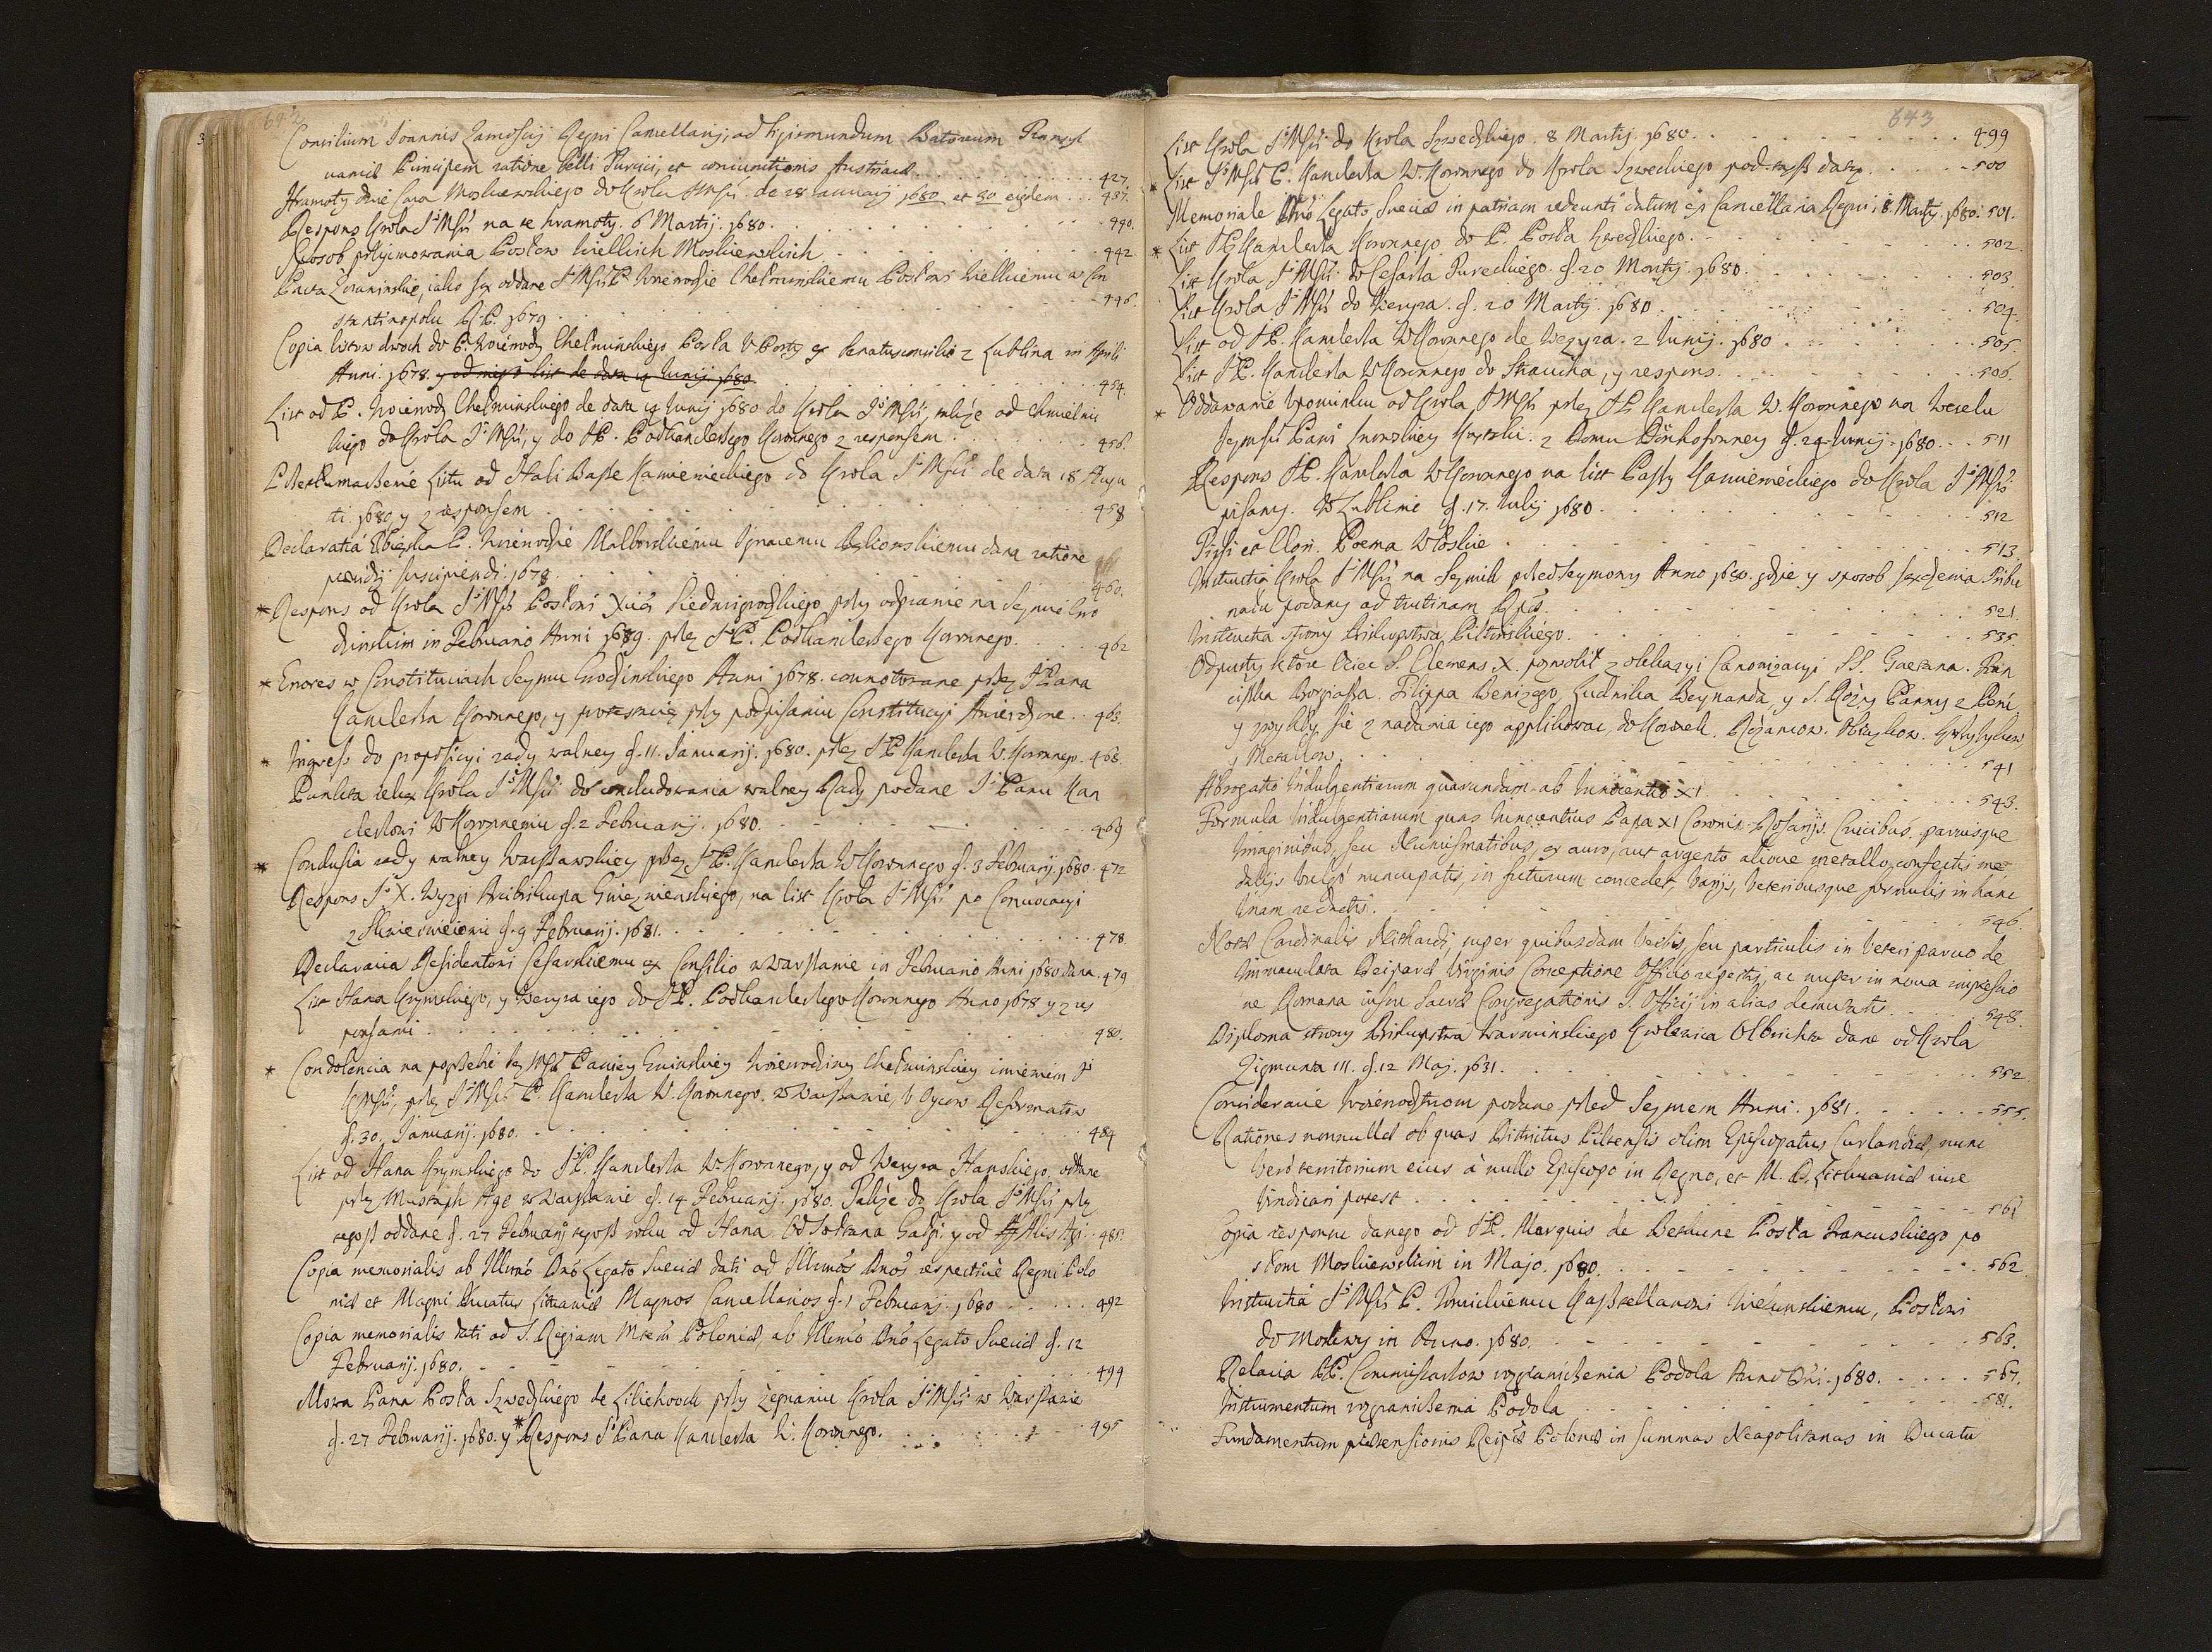 642
Consilium Joannis Zamoscij Regni Cancellarij, ad Sigismundum Batoreum Transyl
vaniæ Principem ratione belli Turcici, et coniunctionis Austriacæ . . . 427.
Hramoty dwie Cara Moskiewskiego do Krola JMsci de 28 Januarij 1680 et 30 eiusdem . . . 437.
Respons Krola Jº Msci na te hramoty. 6 Martij. 1680. . . . 440.
Sposob przyimowania Posłow Wielkich Moskiewskich . . . 442
Pacta Zorawinskie, iako są oddane Jº Msci P. Woiewodzie Chełminskiemu Posłowi Wielkiemu w Con
stantinopolu A. P. 1679 . . . 446.
Copia listow dwoch do P. Woiewody Chełminskiego Posła U Porty ex Senatusconsilio z Lublina in Aprili
Anni. 1678. y od niego list de data 14 Junij 1680. . . . 454.
List od P. Woiewody Chełminskiego de data 14 Junij 1680 do Krola Jº Msci, także od Chmielnic
kiego do Krola Jº Msci, y do JP. Podkanclerzego Koronnego z responsem . . . 456.
Przetłumaczenie Listu od Hali Basze Kamienieckiego do Krola Jº Msci de data 18 Augu
sti 1680 y z responsem . . . 458
Declaratia Xiązęcia P. Woiewodzie Malborskiemu Ignacemu Bąkowskiemu dana ratione
præsidij suscipiendi. 1678. . . . 460.
* Respons od Krola Jº Msci Posłowi Xcia Siedmigrodzkiego przy odprawie na Seymie Gro
dzinskim in Februario Anni 1679. przez Jº P. Podkanclerzego Koronnego. . . . 462
* Errores w Constituciach Seymu Grodzinskiego Anni 1678. connotowane przez JPana
Kanclerza Koronnego, y protestacią przy podpisaniu Constitucyi stwierdzone . . 463.
* Ingress do propositcyi rady walney d. 11. Januarij. 1680. przez JP Kanclerza W. Koronnego. 468.
Punkta ręką Krola Jº Msci do concludowania walney Rady podane Jº Panu Kan
clerzowi W Koronnemu d. 2 Februarij. 1680. . . . 469
* Conclusia rady walney Warszawskiey przez Jº P. Kanclerza W Koronnego d. 3 Februarij 1680. 472
Respons Jº X. Wyzgi Arcibiskupa Gnieznienskiego, na list Krola Jº Msci po Convocacyi
z Skierniewicowi d. 9 Februarij. 1681. . . . 478.
Declaracia Residentowi Cesarskiemu ex Consilio w Warszawie in Februario Anni 1680 dana. 479
List Hana Krymskiego, y Wezyra iego do JP. Podkanclerzego Koronnego Anno 1678 y z res
ponsami . . . 480.
* Condolencia na pogrzebie Jey Msci Paniey Gninskiey Woiewodziny Chełminskiey imieniem J
K Msci, przez Jº Msci P. Kanclerza W. Koronnego. w Warszawie, U Oycow Reformatow
d. 30. Januarij. 1680. . . . 484
List od Hana Krymskiego do Jº P. Kanclerza W. Koronnego, y od Wezyra Hanskiego, oddane
przez Mustaph Agę w Warszawie d. 14 Februarij. 1680. Także do Krola Jº Msci przez
tegoż oddane d. 27 Februarij tegoż roku od Hana. Od Sołtana Gałgi y od Alis Agi . . 485.
Copia memorialis ab Illmo Dno Legato Sueciæ dati ad Illmos Dnos respective Regni Polo
niæ et Magni Ducatus Lituaniæ Magnos Cancellarios d. 1 Februarij. 1680 . . . 492
Copia memorialis dati ad S. Regiam Mtem Poloniæ, ab Illmo Dno Legato Sueciæ d. 12
Februarij. 1680. . . . 494
Mowa Pana Posła Szwedzkiego de Liliehoock przy żegnaniu Krola Jº Msci w Warszawie
d. 27 Februarij. 1680. y * Respons Jº Pana Kanclerza W. Koronnego. . . . 495
643
List Krola Jº Msci do Krola Szwedzkiego. 8 Martij. 1680. . . . 499
* List Jº Msci P. Kanclerza W. Koronnego do Krola Szwedzkiego pod tąsz datą. . . . 500
Memoriale Dno Legato Sueciæ in patriam redeunti datum ex Cancellaria Regni. 8. Martij. 1680. 501.
* List JP Kanclerza Koronnego do P. Posła Szwedzkiego. . . . 502.
List Krola Jº Msci do Cesarza Tureckiego. d. 20 Martij. 1680. . . . 503.
List Krola Jº Msci do Wezyra. d. 20 Martij. 1680. . . . 504.
List od JP. Kanclerza W Koronnego de Wezyra. 2 Junij. 1680 . . . 505.
List JP. Kanclerza W Koronnego do Skaucha, y respons. . . . 506.
* Oddawanie Upominku od Krola JMsci przez JP Kanclerza W. Koronnego na Weselu
Jeymsci Pani Krayczyney. z Domu Dönhofowney d. 24 Junij. 1680. . . 511
Respons JP. Kanclerza W Koronnego na list Baszy Kamienieckiego do Krola Jº Msci
pisany. W Lublinie d. 17. Julij 1680. . . . 512
Tirsi et Clori. Poema Włoskie . . . 513.
Instructia Krola Jº Msci na Seymik przedseymowy Anno 1680. gdzie y sposob sądzenia Tribu
nału podany ad trutinam Rptæ. . . . 521.
Instructia strony Biskupstwa Piltinskiego. . . . 535.
Odpusty ktore Ociec S. Clemens X. pozwolił z okkazyi Canonizacyi SS. Gaetana. Fran
ciszka Borgiasza. Filippa Benizego, Ludwika Beynarda, y S. Rozy Panny z Peru,
y zwykły sie z nadania iego applikować, do Koronek. Różancow. Obrazkow. Krzyżykow,
y Metallow. . . . 541
Abrogatio Indulgentiarum quarundam ab Innocentio XI. . . . 543.
Formula Indulgentiarum quas Innocentius Papa XI Coronis. Rosarijs. Crucibus. parvisque
Imaginibus, seu Numismatibus, ex auro, aut argento aliove metallo confectis me
dalijs vulgò nuncupatis, in futurum concedet, varijs, veteribusque formulis in hanc
Unam redactis. . . . 546.
Notæ Cardinalis Richardi, super quibusdam verbis, seu particulis in veteri parvo de
Immaculata Deiparæ Virginis Conceptione Officio repertis, ac nuper in nova impressio
ne Romana iussu Sacræ Congregationis S. Officij in alias demutatis. . . . 548.
Diploma strony Biskupstwa Warminskiego Krolewica Olbrichta dane od Krola
Zigmunta III. d. 12 Maj. 1631. . . . 552.
Consideracie Woiewodztwom podane przed Seymem Anni. 1681. . . . 555.
Rationes nonnullæ ob quas Districtus Piltensis olim Episcopatus Curlandiæ, nunc
verò territorium eius à nullo Episcopo in Regno, et M. D. Lithuaniæ iure
Vindicari potest . . . 561
Copia responsu danego od JP. Marquis de Bethune Posła Francuskiego po
słom Moskiewskim in Majo. 1680. . . . 562
Instructia Jº Msci P. Tomickiemu Kasztellanowi Wielunskiemu, Posłowi
do Moskwy in Anno. 1680. . . . 563.
Relacia PP. Commissarzow rozgraniczenia Podola Anno Dni. 1680. . . . 567.
Instrumentum rozgraniczenia Podola . . . 581.
Fundamentum prætensionis Reipcæ Polonæ in summas Neapolitanas in Ducatu